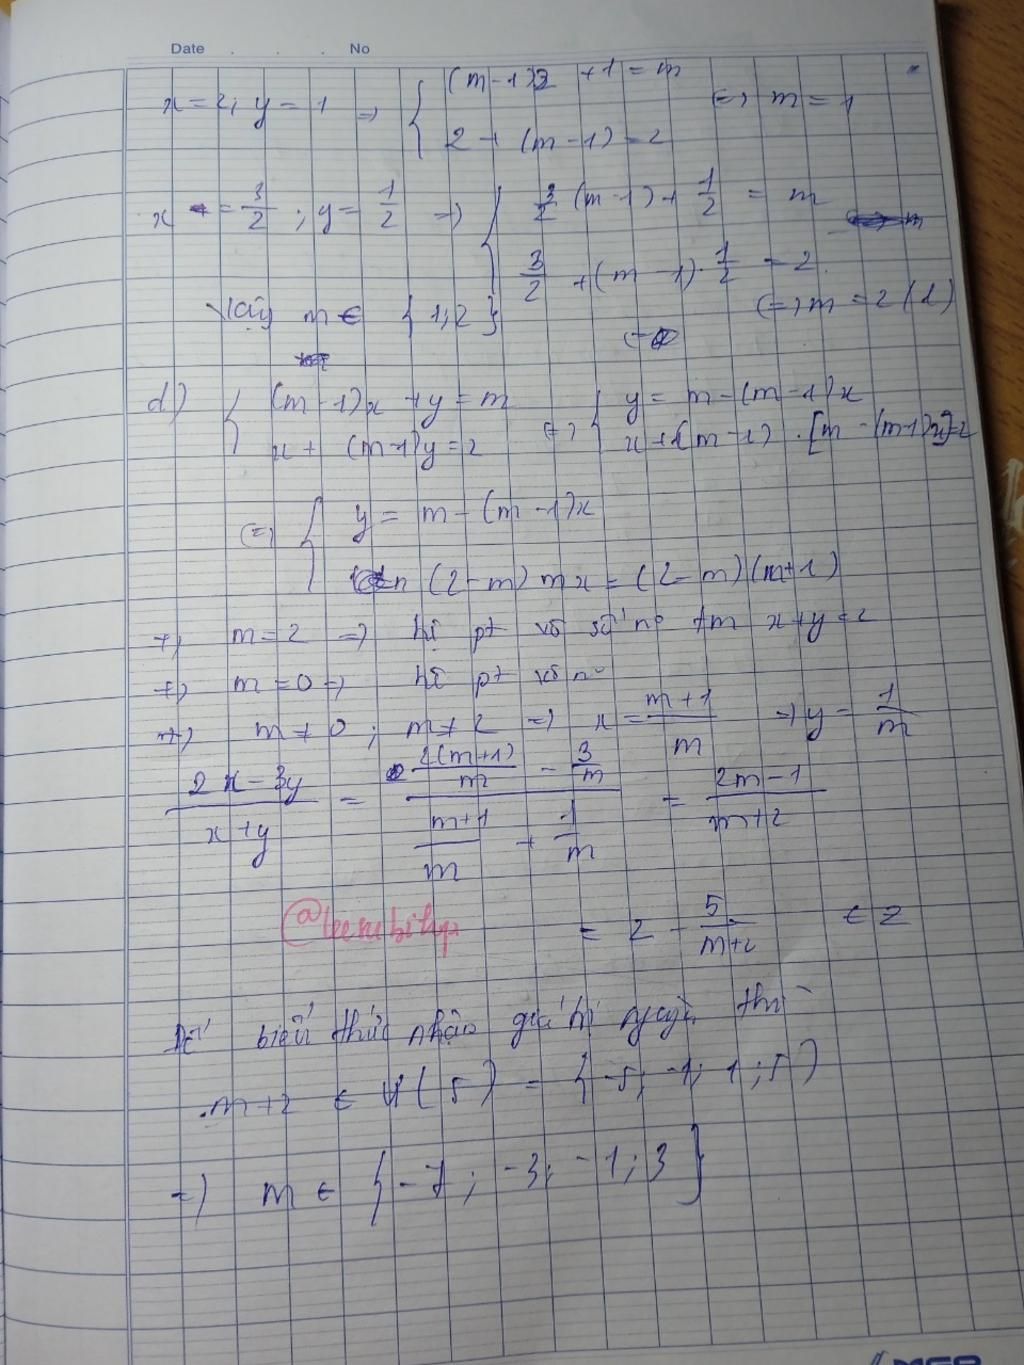 Date . . . No
x = 2, y = 1 => { (m-1)2 + 1 = m
2 + (m-1) = 2
<=> m = 1
x = 3/2 ; y = 1/2 => { 3/2 (m-1) + 1/2 = m
3/2 + (m-1) . 1/2 = 2
<=> m = 2 (l)
Vậy m ∈ { 1; 2 }
d) { (m-1)x + y = m
x + (m-1)y = 2
<=> { y = m - (m-1)x
x + (m-1) . [m - (m-1)x] = 2
<=> { y = m - (m-1)x
(2-m) m x = (2-m)(m+1)
+) m = 2 => hệ pt vô số no tm x+y=2
+) m = 0 => hệ pt vô no
+) m ≠ 0 ; m ≠ 2 => x = (m+1)/m => y = 1/m
(2x-3y)/(x+y) = (2(m+1)/m - 3/m)/((m+1)/m + 1/m) = (2m-1)/(m+2)
= 2 - 5/(m+2) ∈ Z
Để biểu thức nhận giá trị nguyên thì
m+2 ∈ Ư(5) = {-5; -1; 1; 5}
=> m ∈ {-7; -3; -1; 3}